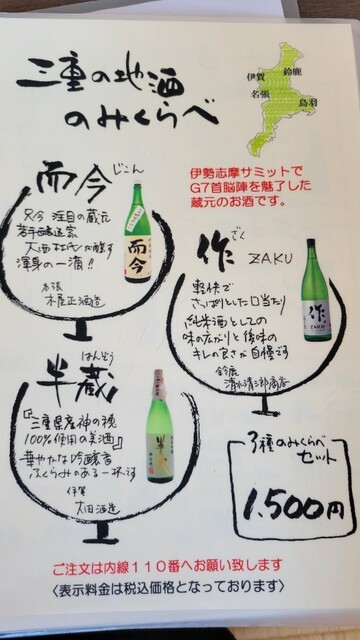 三重の地酒
のみくらべ
伊賀
鈴鹿
名張
鳥羽
伊勢志摩サミットで
G7首脳陣を魅了した
蔵元のお酒です。
而今
じこん
只今 注目の蔵元
若手醸造家
大西杜氏が醸す
渾身の一滴!!
名張
木屋正酒造
而今
作
ざく
ZAKU
軽快で
さっぱりとした口当たり
純米酒としての
味の広がりと後味の
キレの良さが自慢です
鈴鹿
清水清三郎商店
作
ZAKU
半蔵
はんぞう
『三重県産神の穂
100%使用の美酒』
華やかな吟醸香
ふくらみのある一杯です
伊賀
大田酒造
半蔵
3種のみくらべ
セット
1.500円
ご注文は内線110番へお願い致します
〈表示料金は税込価格となっております〉